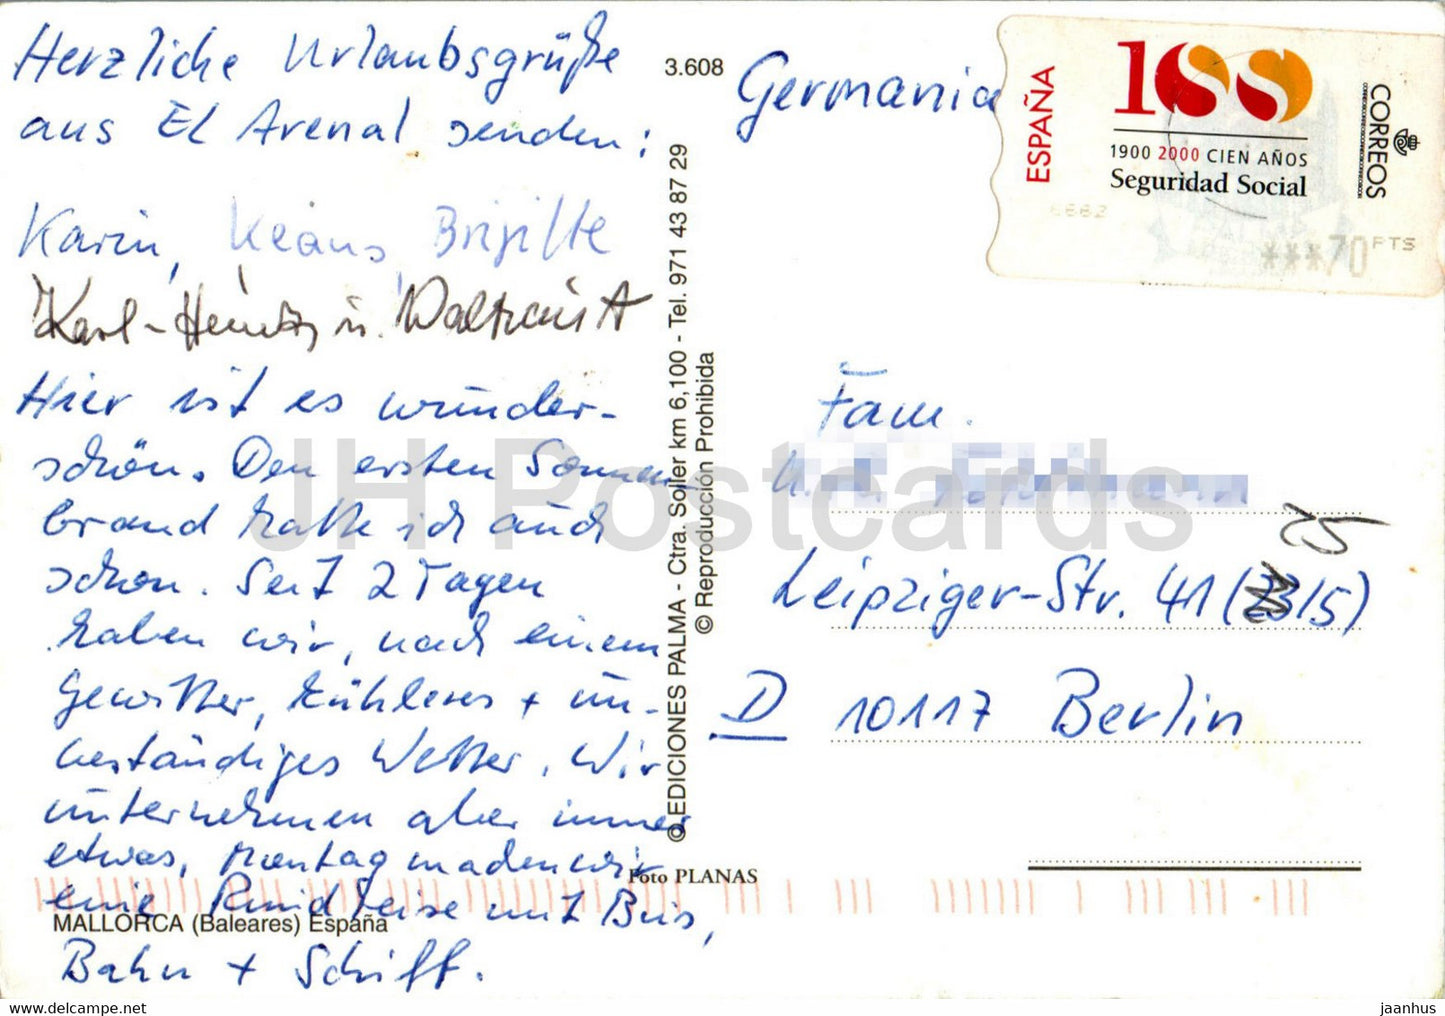 Herzliche Urlaubsgrüße
aus El Arenal senden:
Karin, Klaus, Brigitte
Karl-Heinz u. Waltraut
Hier ist es wunder-
schön. Den ersten Sonnen-
brand hatte ich auch
schon. Seit 2 Tagen
haben wir, nach einem
Gewitter, kühleres + un-
beständiges Wetter. Wir
unternehmen aber immer
etwas, Montag machen wir
eine Rundreise mit Bus,
Bahn + Schiff.
MALLORCA (Baleares) España
3.608
© EDICIONES PALMA - Ctra. Soller km 6,100 - Tel. 971 43 87 29
© Reproducción Prohibida
Foto PLANAS
Germania
ESPAÑA
100
1900 2000 CIEN AÑOS
Seguridad Social
CORREOS
***70 PTS
Fam.
Leipziger-Str. 41 (/5)
25
D 10117 Berlin
JH Postcards
https://www.delcampe.net
jaanhus